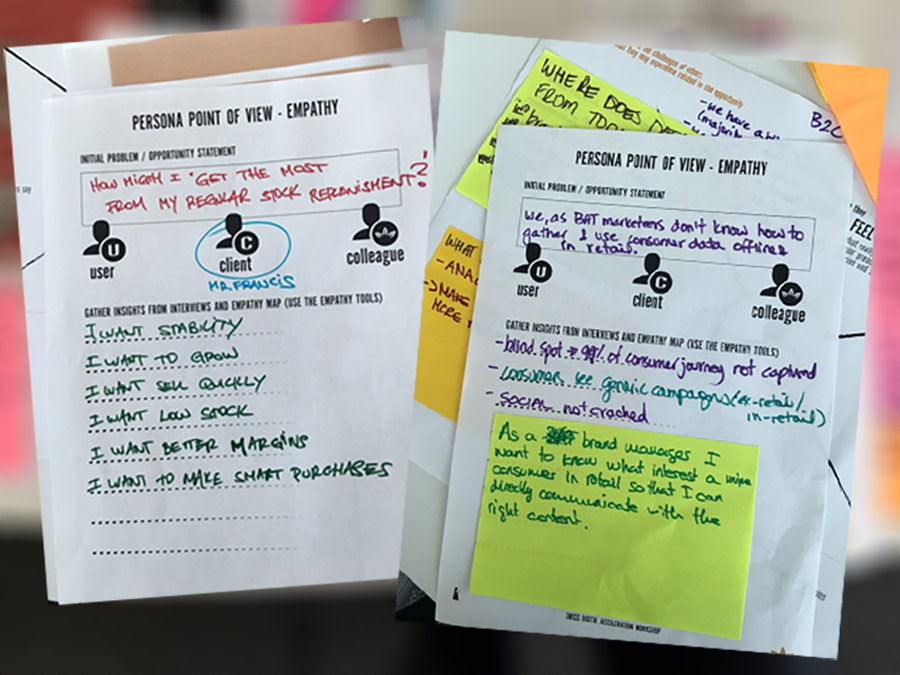 PERSONA POINT OF VIEW - EMPATHY
INITIAL PROBLEM / OPPORTUNITY STATEMENT
HOW MIGHT I GET THE MOST
FROM MY REGULAR STOCK REPLENISMENT?
U
user
C
client
colleague
MR. FRANCIS
GATHER INSIGHTS FROM INTERVIEWS AND EMPATHY MAP (USE THE EMPATHY TOOLS)
I WANT STABILITY
I WANT TO GROW
I WANT SELL QUICKLY
I WANT LOW STOCK
I WANT BETTER MARGINS
I WANT TO MAKE SMART PURCHASES
say
WHERE DOES
FROM
- we have a
B2C
FEEL
WHAT
- ANA
-> MAKE
MORE
PERSONA POINT OF VIEW - EMPATHY
INITIAL PROBLEM / OPPORTUNITY STATEMENT
We, as BAT marketeers don't know how to
gather & use consumer data offline
in retail.
U
user
C
client
colleague
GATHER INSIGHTS FROM INTERVIEWS AND EMPATHY MAP (USE THE EMPATHY TOOLS)
- blind spot 99% of consumer journey not captured
- consumers see generic campaigns (ex-retail/
in-retail)
- SOCIAL not cracked
As a brand manager I
want to know what interest a unique
consumer in retail so that I can
directly communicate with the
right content.
SWISS DIGITAL ACCELERATION WORKSHOP